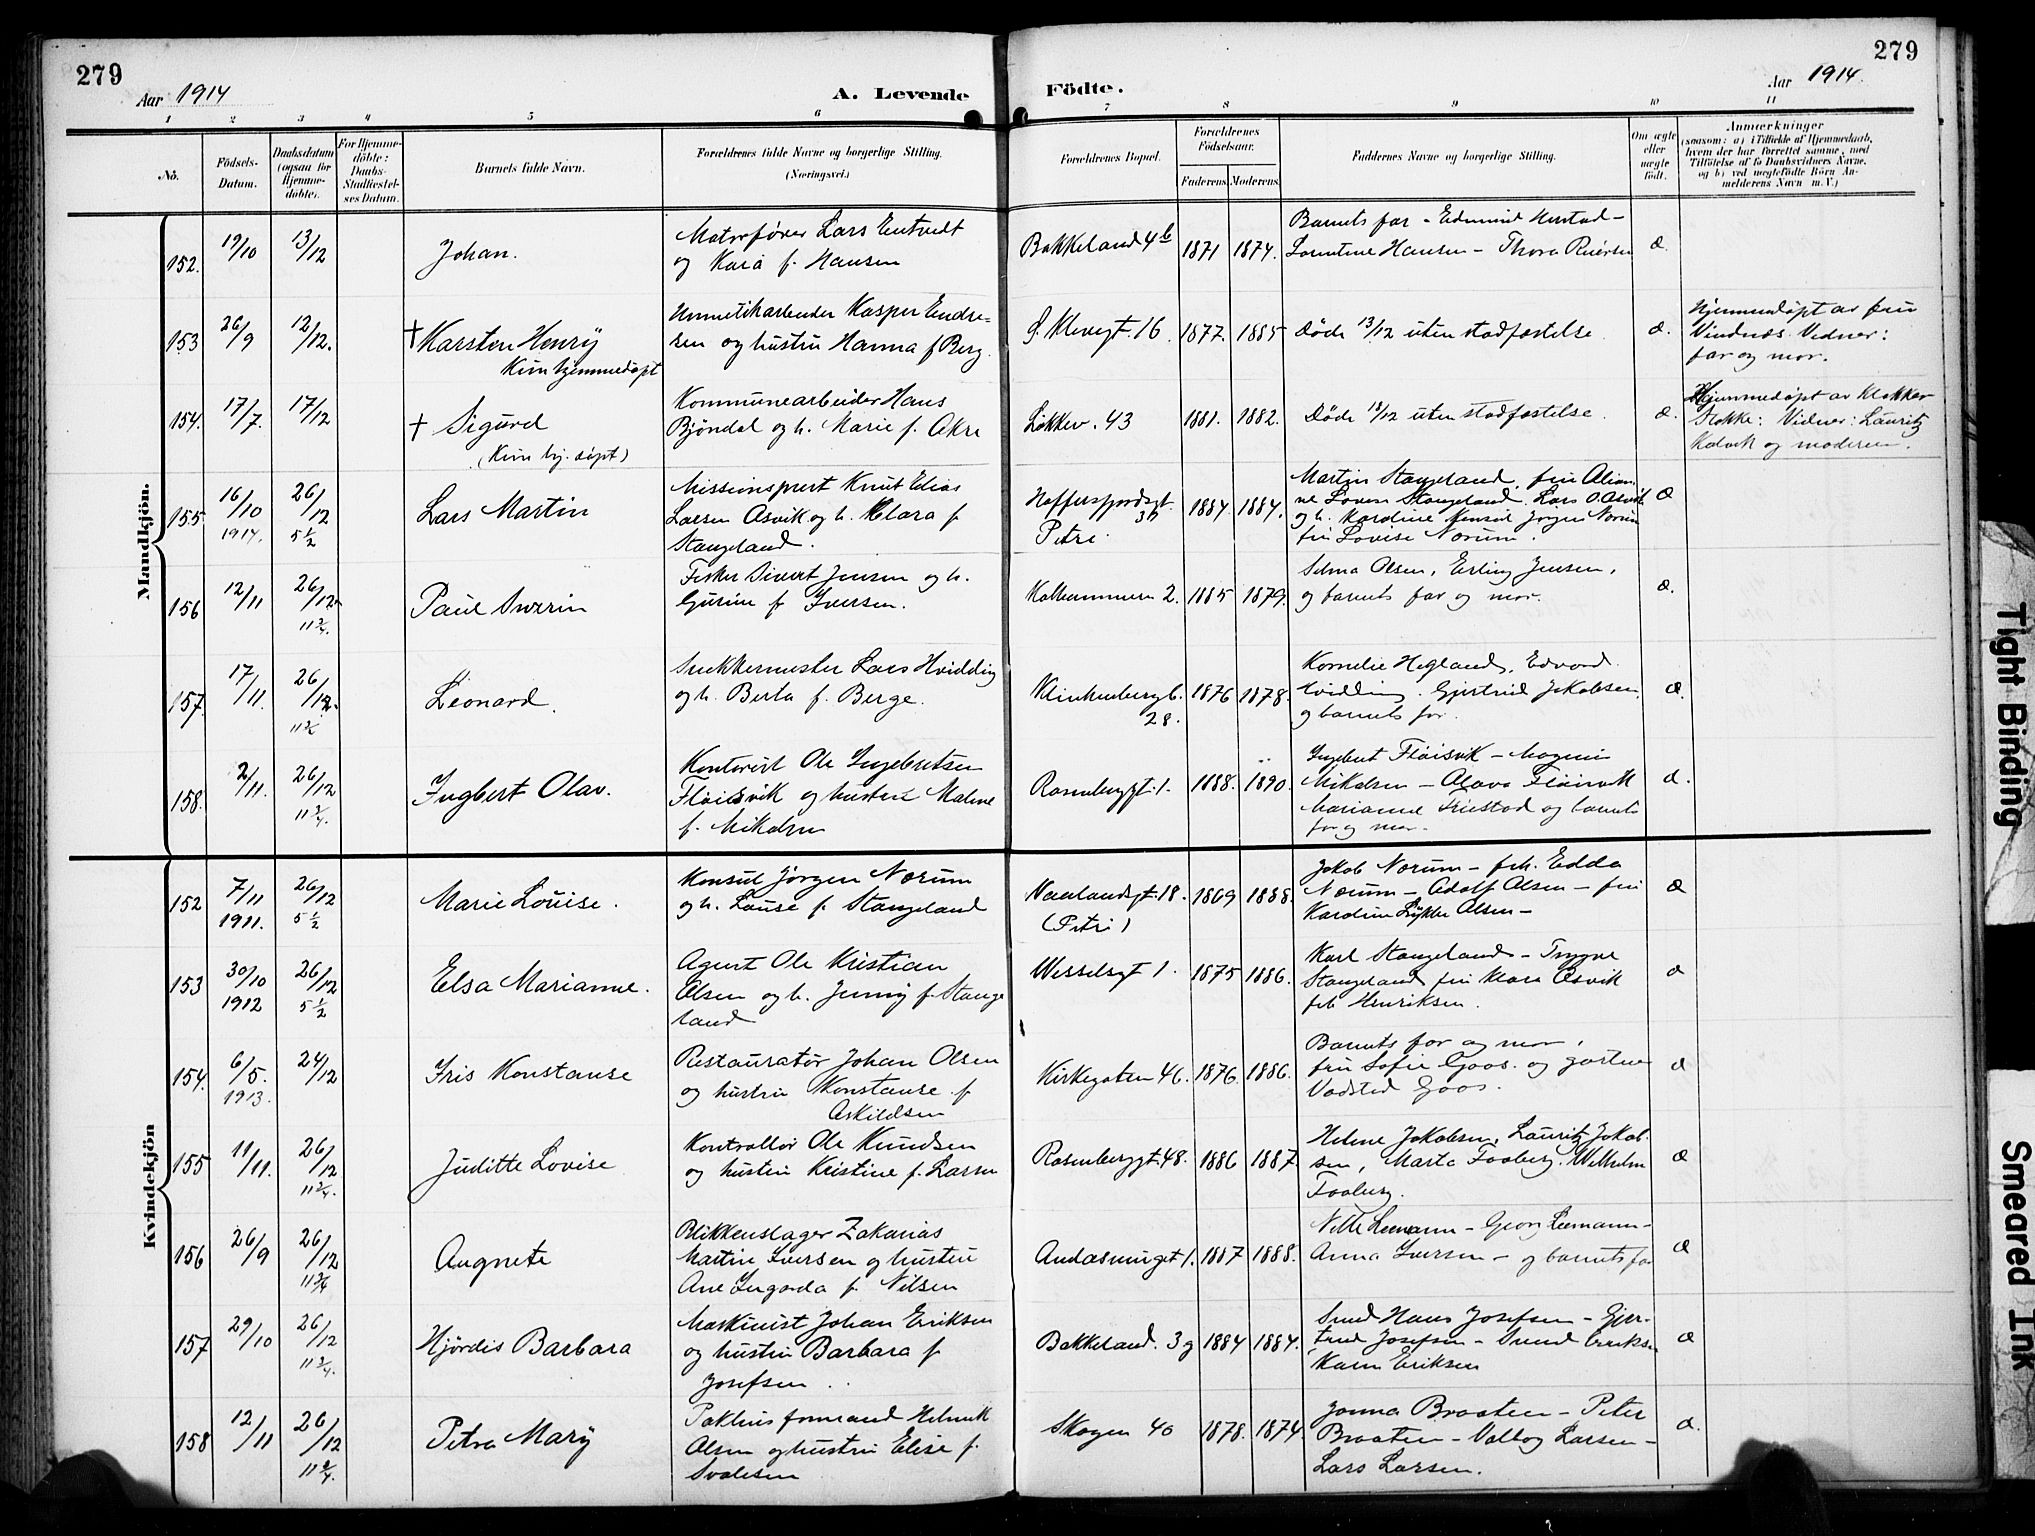 279
Aar 1914
A. Levende Födte.
Aar 1914.
279
1 2 3 4 5 6 7 8 9 10 11
No.
Födsels-
Datum.
Daabsdatum
(ogsaa for
Hjemme-
döbte).
For Hjemme-
döbte:
Daabs-
Stadfæstel-
ses Datum.
Barnets fulde Navn.
Forældrenes fulde Navne og borgerlige Stilling.
(Næringsvei.)
Forældrenes Bopæl.
Forældrenes
Födselsaar.
Faderens. Moderens.
Faddernes Navne og borgerlige Stilling.
Om ægte
eller
uægte
födt.
Anmærkninger
(saasom: a) i Tilfælde af Hjemmedaab,
hvem der har forrettet samme, med
Tilföielse af to Daabsvidners Navne,
og b) ved uægtefödte Börn An-
melderens Navn m. V.)
Mandkjön.
152. 19/10 13/12 Johan.
Motorfører Lars Entvedt
og Kaia f. Hansen
Bakkeland 4b 1871 1874.
Barnets far – Edmund Herstad –
Lorentine Hansen – Thora Reiersen
æ.
153 26/9 12/12. † Karsten Henry
Kun hjemmedøpt
Hermetikarbeider Kasper Endre-
sen og hustru Hanna f Berg.
S. Klevegt. 16 1877. 1885
Døde 13/12 uten stadfæstelse.
æ.
Hjemmedøpt av fru
Vindnæs. Vidner:
far og mor.
154. 17/7. 17/12 † Sigurd
(Kun hj. døpt)
Kommunearbeider Hans
Bjøndal og h. Marie f. Akre
Løkkev. 43 1881. 1882.
Døde 18/12 uten stadfæstelse.
æ.
Hjemmedøpt av Klokker
Stokke: Vidner: Lauritz
Kalvik og moderen.
155 16/10 1914. 26/12 5½ Lars Martin
Missionsprest Knut Elias
Larsen Asvik og h. Klara f
Stangeland.
Haffersfjordsgt.
Petri. 1884. 1884.
Martin Stangeland, fru
Lovise Stangeland. Lars O. Asvik
og h. Karoline. Konsul Jørgen Nærum
fru Lovise Nærum.
æ
156 12/11 26/12 11¾. Paul Sverin
Fisker Sivert Jensen og h.
Gurine f Iversen.
Kalhammeren 2. 1885 1879.
Selma Olsen, Erling Jensen,
og barnets far og mor.
æ.
157. 17/11. 26/12. 11¾ Leonard.
Snekkermester Lars Hvidding
og h. Berta f. Berge.
Klinkenbergg.
28. 1876 1878.
Kornelie Hegland, Edvard
Hvidding. Gjertrud Jakobsen
og barnets far.
æ.
158. 2/11. 26/12 11¾. Ingbert Olav.
Kontorist Ole Ingebretsen
Fløisvik og hustru Malene
f. Mikalsen
Rosenberggt. 1. 1888. 1890.
Ingebert Fløisvik – Magnus
Mikalsen – Olava Fløisvik
Marianne Friestad og barnets
far og mor.
æ.
Kvindekjön
152 7/11 1911. 26/12 5½ Marie Louise.
Konsul Jørgen Nærum
og h. Louise f. Stangeland
Vaalandsgt. 18.
(Petri) 1869 1888.
Jakob Nærum – frk. Edda
Nærum – Adolf Olsen – fru
Karoline Lykke Olsen –
æ
153 30/10 1912 26/12 5½ Elsa Marianne.
Agent Ole Kristian
Olsen og h. Jenny f. Stange
land
Wesselsgt 1. 1875 1886.
Karl Stangeland – Trygve
Stangeland fru Klara Asvik
frk Henriksen.
æ
154. 6/5. 1913. 24/12 Iris Konstanse
Restauratør Johan Olsen
og hustru Konstanse f
Askildsen
Kirkegaten 46. 1876. 1886.
Barnets far og mor,
fru Sofie Goos. og gartner
Vadsted Goos.
æ
155 11/11. 26/12 11¾. Juditte Lovise
Kontrollør Ole Knudsen
og hustru Kristine f. Larsen
Rosenberggt. 48. 1886 1887.
Helene Jakobsen, Lauritz Jakob-
sen, Marta Faaberg. Wilhelm
Faaberg.
æ
156 26/9 26/12 11¾ Augnete
Blikkenslager Zakarias
Martin Iversen og hustru
Ane Ingarda f. Nilsen
Andasmuget 1. 1887 1888.
Nelle Leemann – Georg Leemann –
Anna Iversen – og barnets far
æ
157 29/10 26/12 11¾. Hjørdis Barbara
Maskinist Johan Eriksen
og hustru Barbara f
Josefsen.
Bakkeland. 3g 1884 1884.
Smed Hans Josefsen – Gjer-
trud Josefsen – Svend Eriksen
Karen Eriksen
æ
158 12/11 26/12 11¾. Petra Mary
Pakhusformand Helmik
Olsen og hustru Elise f.
Svalesen
Skogen 40 1878. 1874.
Jonna Braaten – Peter
Braaten – Valborg Larsen –
Lars Larsen.
æ.
Tight Binding
Smeared Ink